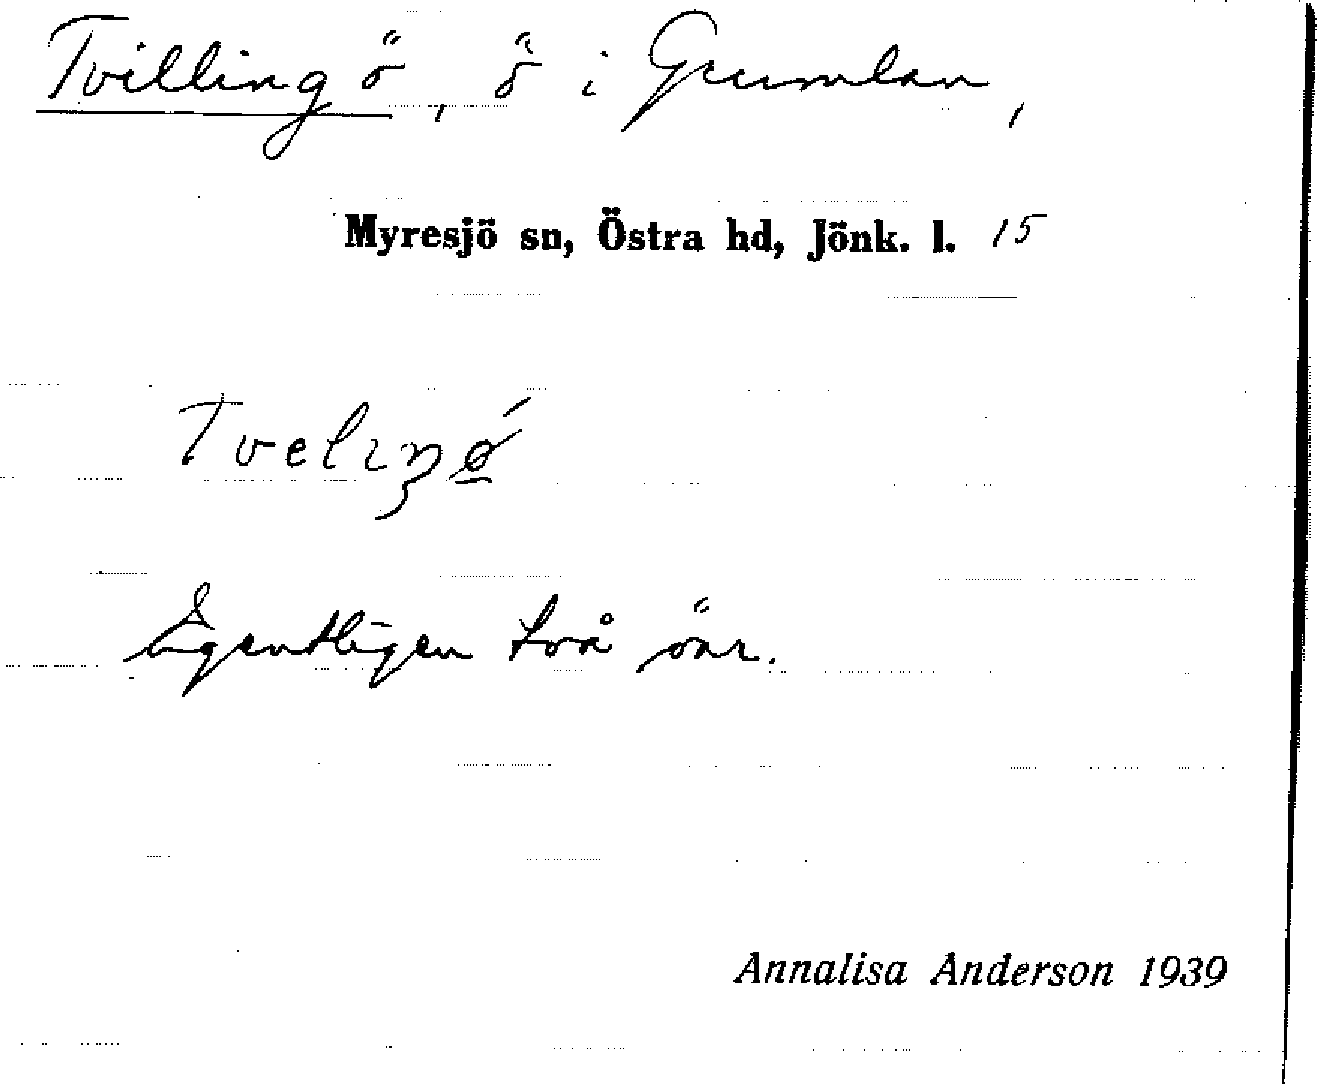 Tvillingö, ö i Grumlan,
Myresjö sn, Östra hd, Jönk. l. 15
Egentligen två öar.
Annalisa Anderson 1939